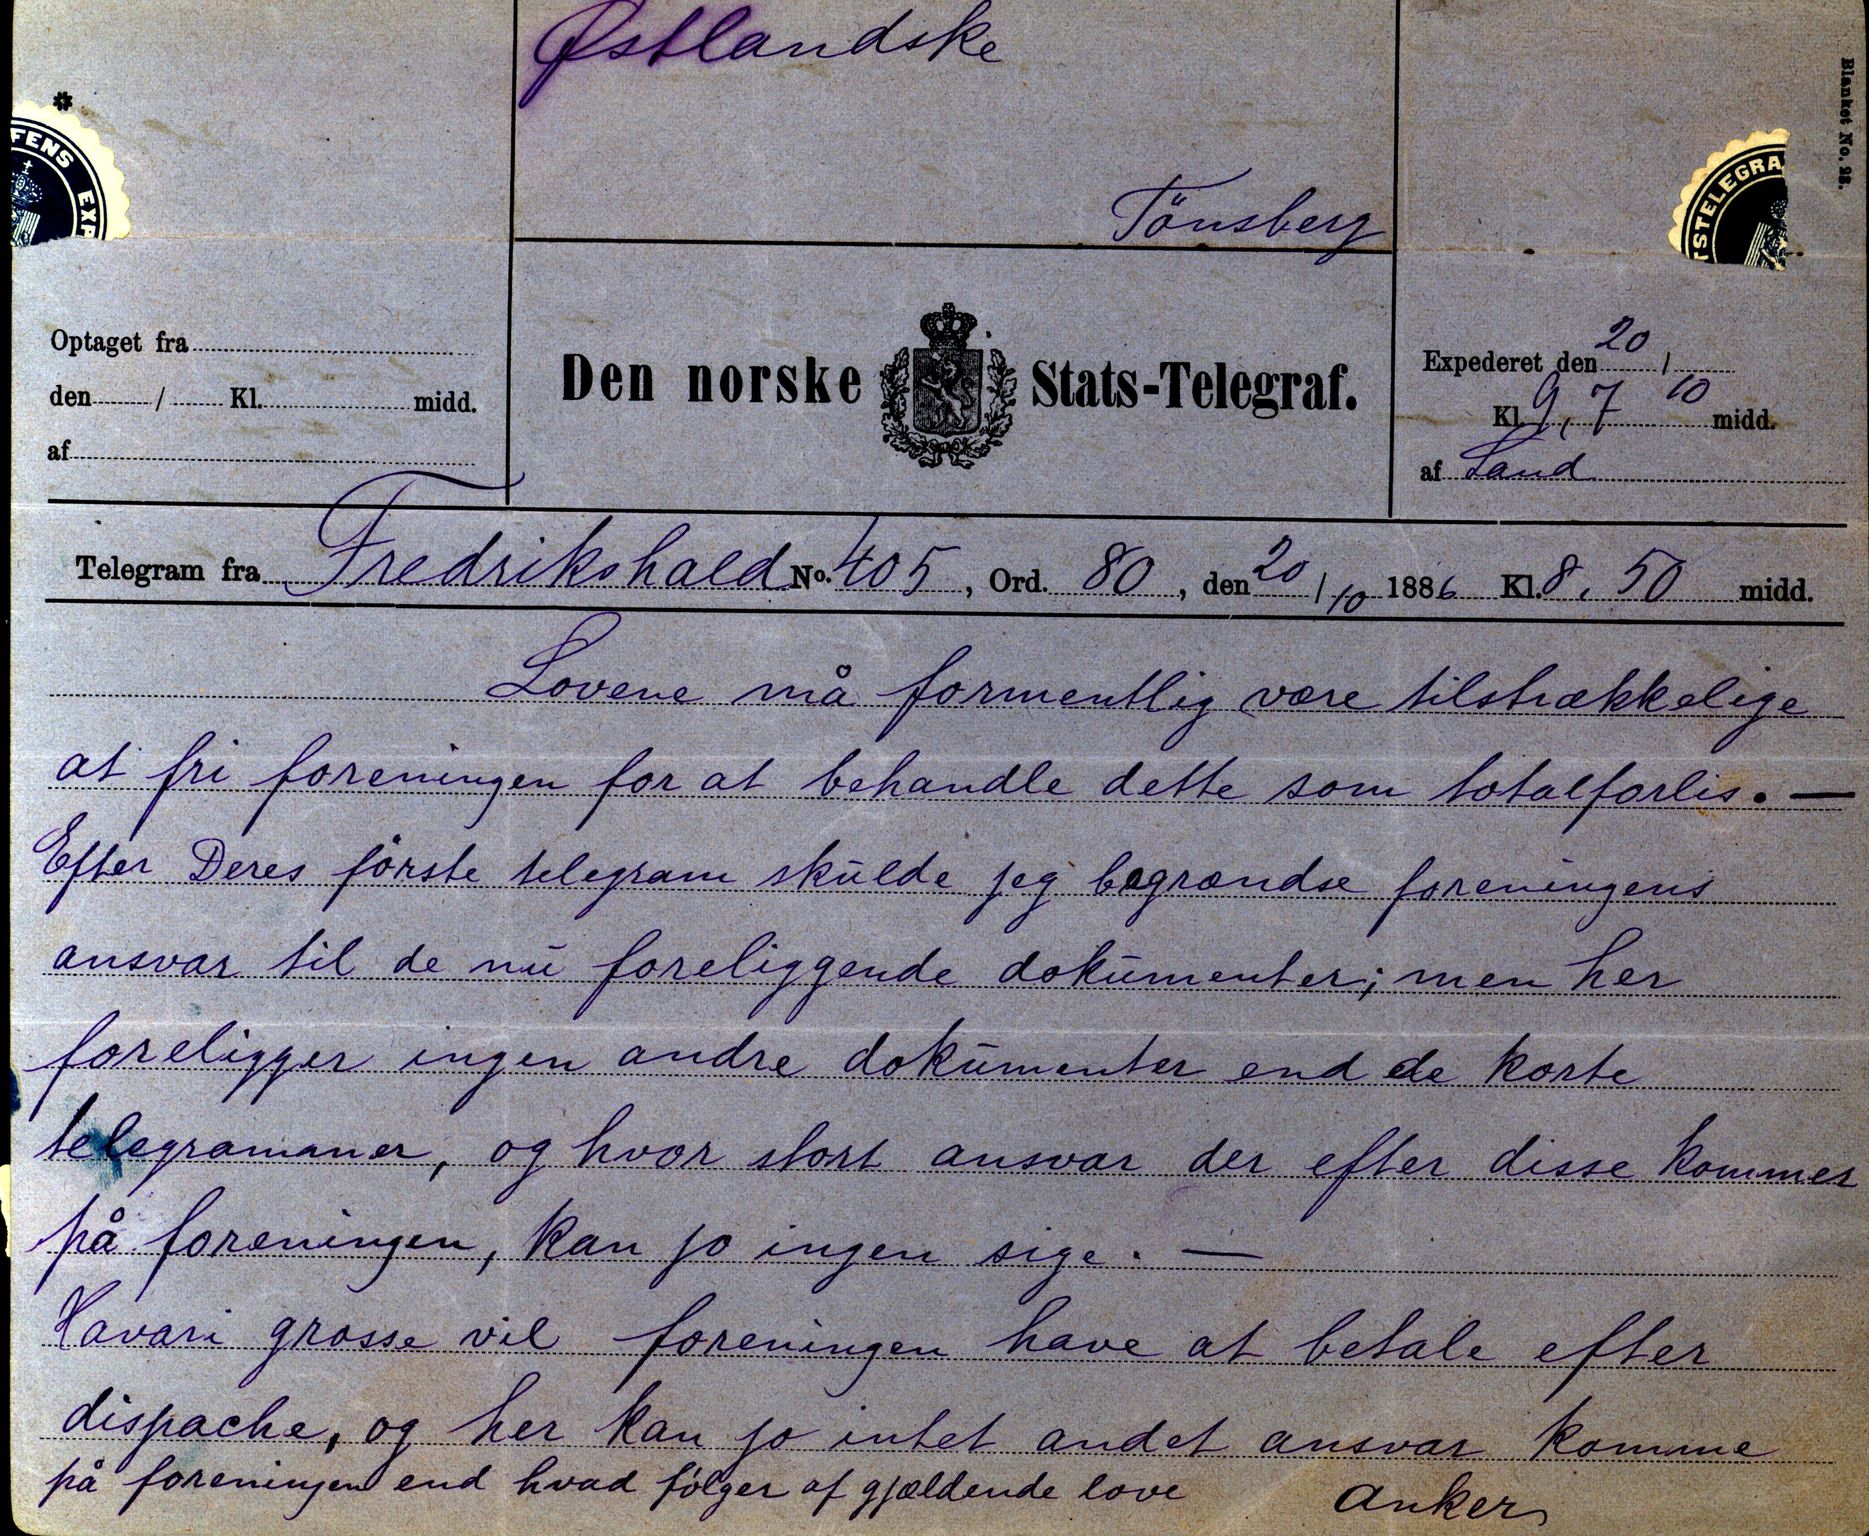 Østlandske
Tönsberg
Blanket No. 98.
FENS EXP
TSTELEGRA
Optaget fra
den / Kl. midd.
af
Den norske Stats-Telegraf.
Expederet den 20 /
Kl. 9,7 10 midd.
af Sand
Telegram fra Fredrikshald No. 405, Ord. 80, den 20/10 1886 Kl. 8.50 midd.
Lovene må formentlig være tilstrækkelige
at fri foreningen for at behandle dette som totalforlis. —
Efter Deres förste telegram skulde jeg begrændse foreningens
ansvar til de nu foreliggende dokumenter; men her
foreligger ingen andre dokumenter end de korte
telegrammer, og hvor stort ansvar der efter disse kommer
på foreningen, kan jo ingen sige. —
Havari grosse vil foreningen have at betale efter
dispache, og her kan jo intet andet ansvar komme
på foreningen end hvad følger af gjældende love Anker